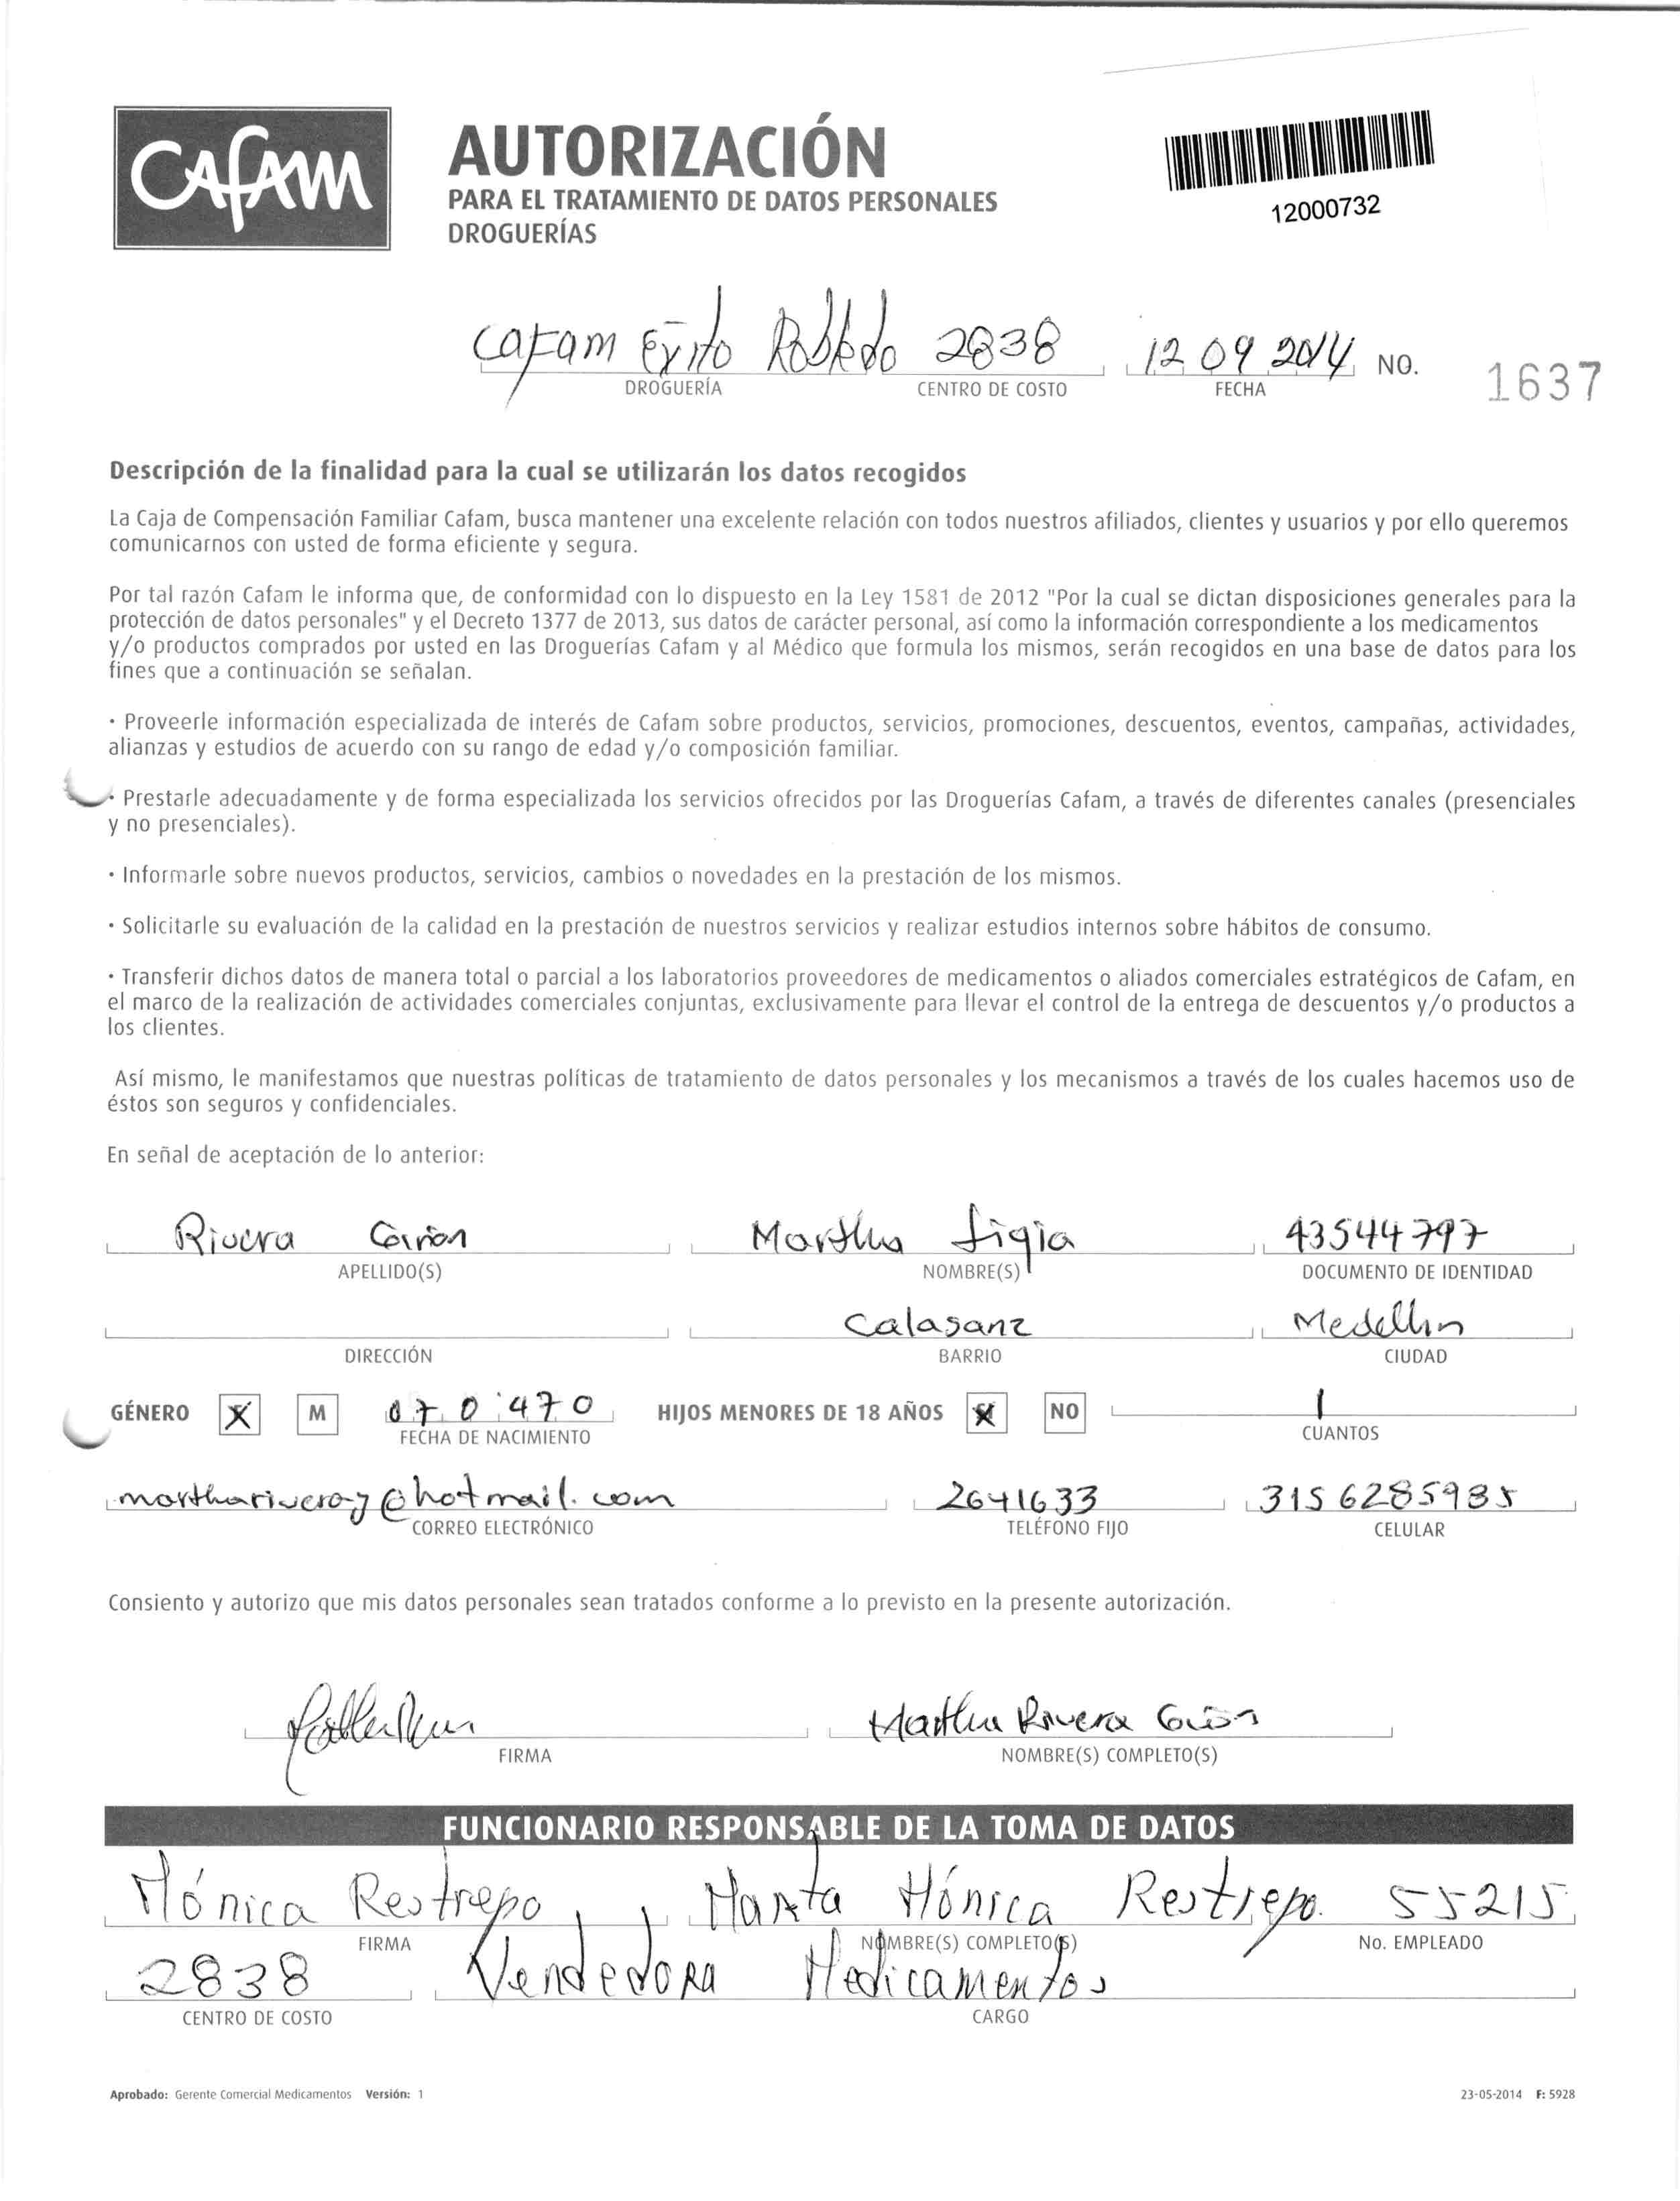 CAFAM
AUTORIZACIÓN
PARA EL TRATAMIENTO DE DATOS PERSONALES
DROGUERÍAS
12000732
Cafam Exito Robledo 2838 12 09 2014 NO. 1637
DROGUERÍA CENTRO DE COSTO FECHA
Descripción de la finalidad para la cual se utilizarán los datos recogidos
La Caja de Compensación Familiar Cafam, busca mantener una excelente relación con todos nuestros afiliados, clientes y usuarios y por ello queremos
comunicarnos con usted de forma eficiente y segura.
Por tal razón Cafam le informa que, de conformidad con lo dispuesto en la Ley 1581 de 2012 "Por la cual se dictan disposiciones generales para la
protección de datos personales" y el Decreto 1377 de 2013, sus datos de carácter personal, así como la información correspondiente a los medicamentos
y/o productos comprados por usted en las Droguerías Cafam y al Médico que formula los mismos, serán recogidos en una base de datos para los
fines que a continuación se señalan.
• Proveerle información especializada de interés de Cafam sobre productos, servicios, promociones, descuentos, eventos, campañas, actividades,
alianzas y estudios de acuerdo con su rango de edad y/o composición familiar.
• Prestarle adecuadamente y de forma especializada los servicios ofrecidos por las Droguerías Cafam, a través de diferentes canales (presenciales
y no presenciales).
• Informarle sobre nuevos productos, servicios, cambios o novedades en la prestación de los mismos.
• Solicitarle su evaluación de la calidad en la prestación de nuestros servicios y realizar estudios internos sobre hábitos de consumo.
• Transferir dichos datos de manera total o parcial a los laboratorios proveedores de medicamentos o aliados comerciales estratégicos de Cafam, en
el marco de la realización de actividades comerciales conjuntas, exclusivamente para llevar el control de la entrega de descuentos y/o productos a
los clientes.
Así mismo, le manifestamos que nuestras políticas de tratamiento de datos personales y los mecanismos a través de los cuales hacemos uso de
éstos son seguros y confidenciales.
En señal de aceptación de lo anterior:
Rivera Martha Ligia 43544797
APELLIDO(S) NOMBRE(S) DOCUMENTO DE IDENTIDAD
Calasanz Medellin
DIRECCIÓN BARRIO CIUDAD
GÉNERO X M 070470 HIJOS MENORES DE 18 AÑOS X NO 1
FECHA DE NACIMIENTO CUANTOS
@hotmail.com 2641633 3156285985
CORREO ELECTRÓNICO TELÉFONO FIJO CELULAR
Consiento y autorizo que mis datos personales sean tratados conforme a lo previsto en la presente autorización.
Martha Rivera
FIRMA NOMBRE(S) COMPLETO(S)
FUNCIONARIO RESPONSABLE DE LA TOMA DE DATOS
Mónica Restrepo Marta Mónica Restrepo. 55215
FIRMA NOMBRE(S) COMPLETO(S) No. EMPLEADO
2838 Vendedora Medicamentos
CENTRO DE COSTO CARGO
Aprobado: Gerente Comercial Medicamentos Versión: 1 23-05-2014 F: 5928